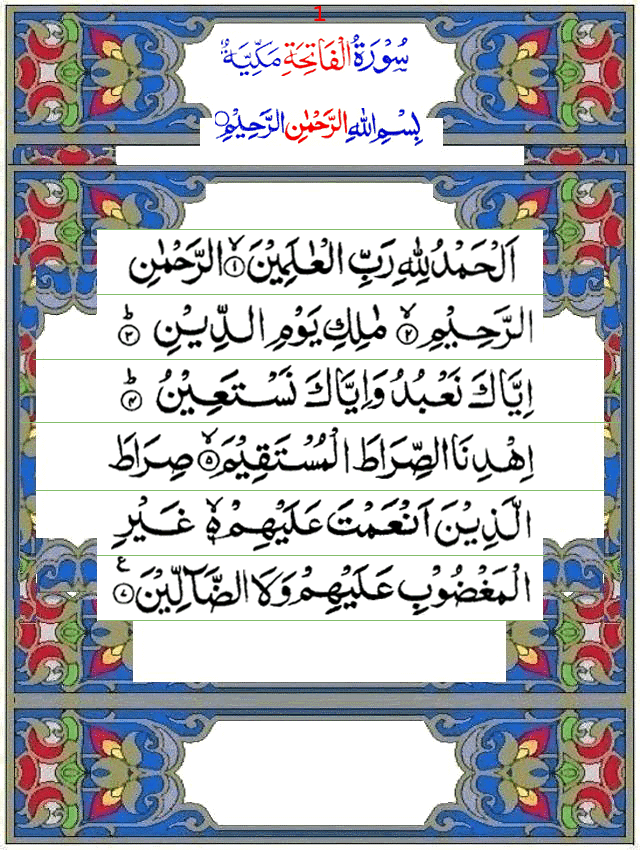 1
سُوْرَةُ الْفَاتِحَةِ مَكِّيَّةٌ
بِسْمِ اللّٰهِ الرَّحْمٰنِ الرَّحِيْمِ۝
اَلْحَمْدُ لِلّٰهِ رَبِّ الْعٰلَمِيْنَ ۙ﴿۱﴾ الرَّحْمٰنِ
الرَّحِيْمِ ۙ﴿۲﴾ مٰلِكِ يَوْمِ الدِّيْنِ ؕ﴿۳﴾
اِيَّاكَ نَعْبُدُ وَاِيَّاكَ نَسْتَعِيْنُ ؕ﴿۴﴾
اِهْدِنَا الصِّرَاطَ الْمُسْتَقِيْمَ ۙ﴿۵﴾ صِرَاطَ
الَّذِيْنَ اَنْعَمْتَ عَلَيْهِمْ ۙ۬ۦ غَيْرِ
الْمَغْضُوْبِ عَلَيْهِمْ وَلَا الضَّآلِّيْنَ ﴿۷﴾ ع